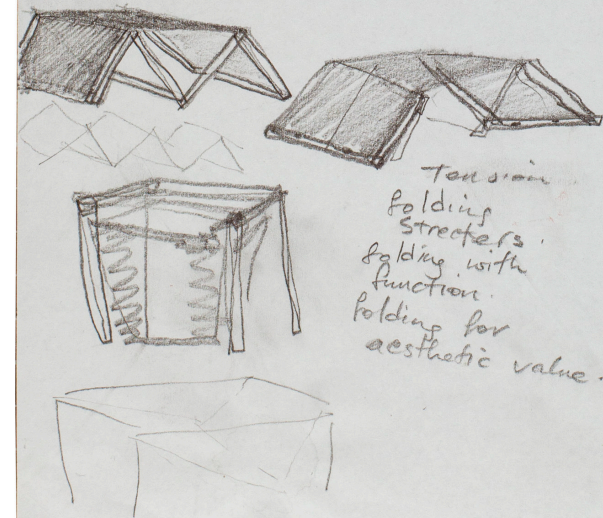 Tension
folding
streeters.
folding with
function.
folding for
aesthetic value.